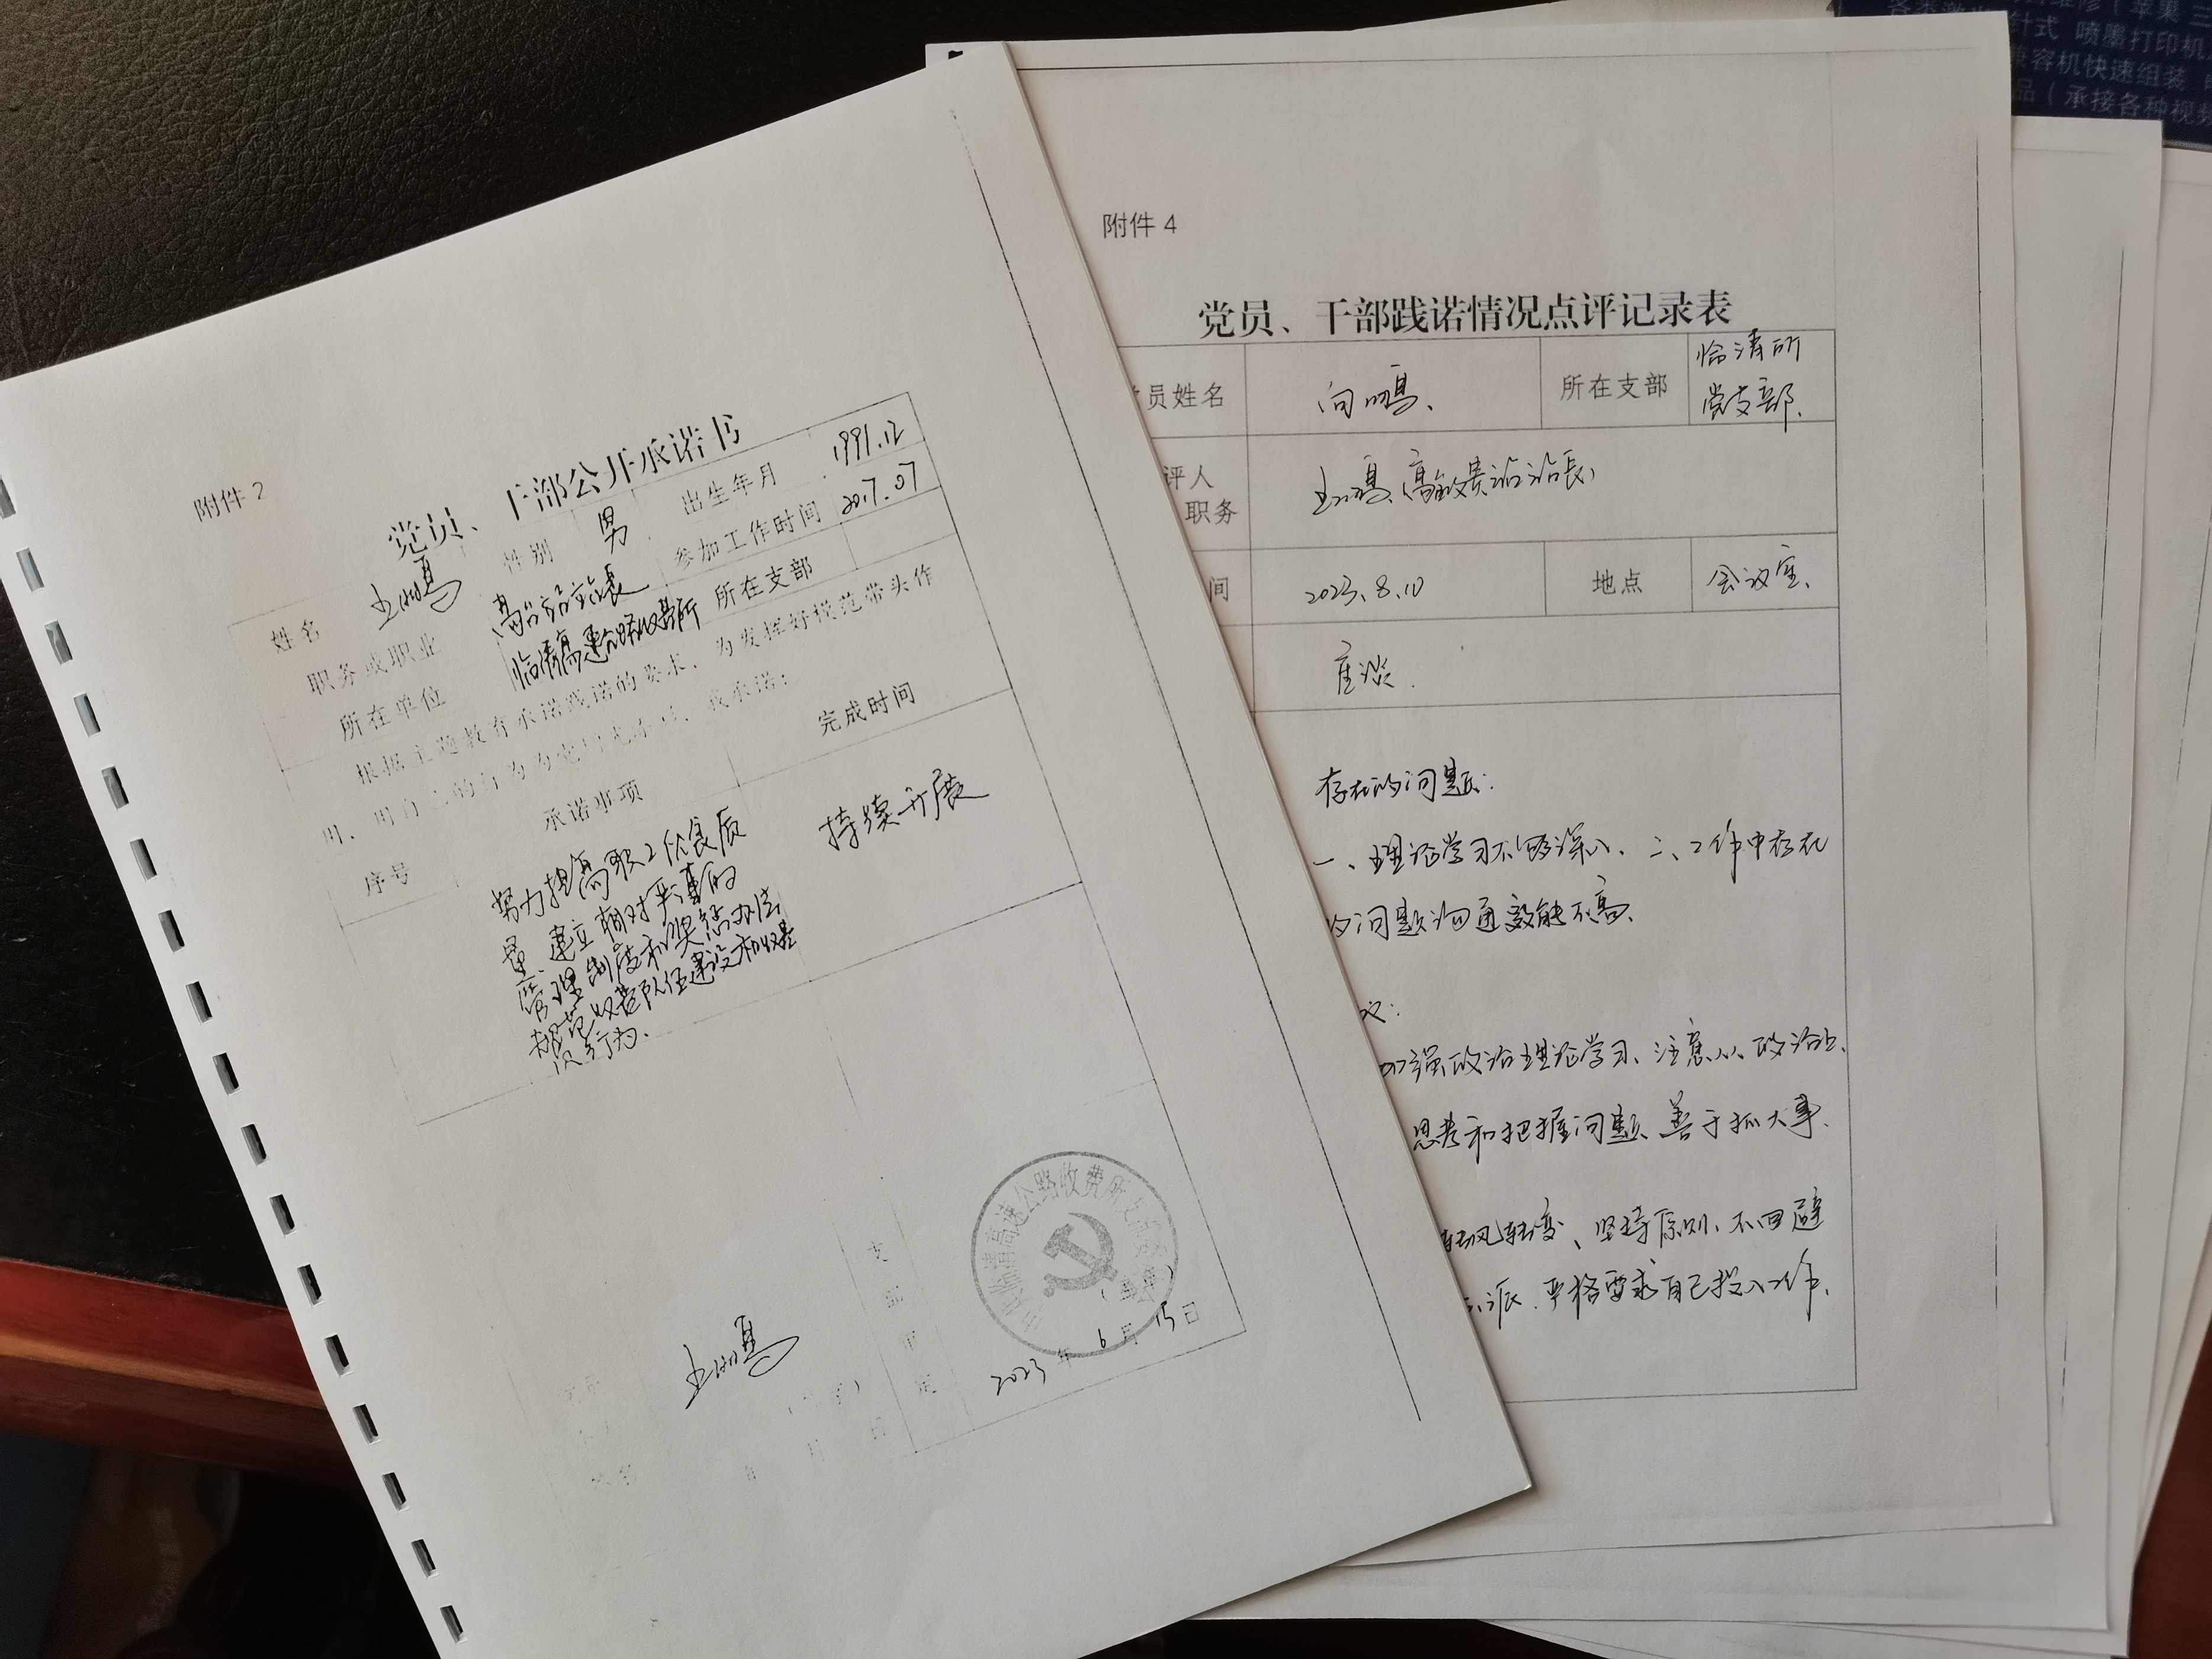 附件2
党员、干部公开承诺书
姓名
性别 男
出生年月 1991.12
职务或职业
参加工作时间 2017.07
所在单位 临清高速公路收费所
所在支部
根据主题教育承诺践诺的要求,为发挥好模范带头作
我承诺:
序号
承诺事项
完成时间
努力提高职工优良质
量、建立相对平事的
管理制度和奖惩办法,
规范收费队伍建设和收费
行为.
持续开展
2023年6月15日
附件4
党员、干部践诺情况点评记录表
员姓名
所在支部
临清所
党支部.
评人
职务
间
2023.8.10
地点
会议室.
座谈.
存在的问题:
一、理论学习不够深入、二、工作中存在
的问题沟通效能不高.
加强政治理论学习、注意从政治上
思考和把握问题、善于抓大事.
转变、坚持原则、不回避
派.严格要求自己投入工作.
针式 喷墨打印机
兼容机快速组装
品(承接各种视频